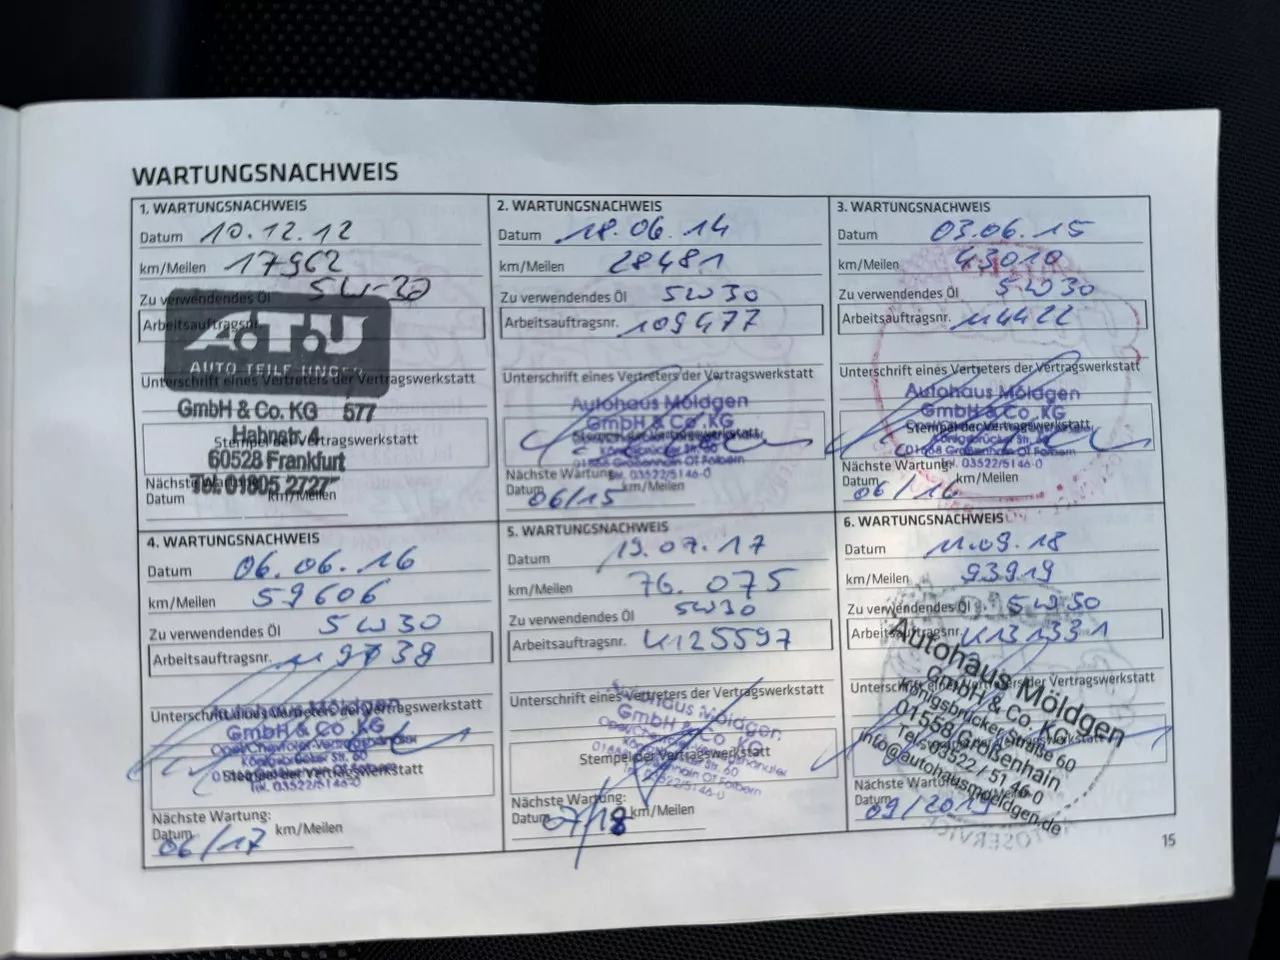 WARTUNGSNACHWEIS
1. WARTUNGSNACHWEIS
Datum 10.12.12
km/Meilen 17962
Zu verwendendes Öl 5W-30
Arbeitsauftragsnr.
A.T.U
AUTO TEILE UNGER
Unterschrift eines Vertreters der Vertragswerkstatt
GmbH & Co. KG 577
Hahnstr. 4
Stempel der Vertragswerkstatt
60528 Frankfurt
Tel. 01805 2727
Nächste Wartung:
Datum km/Meilen
2. WARTUNGSNACHWEIS
Datum 18.06.14
km/Meilen 28481
Zu verwendendes Öl 5W30
Arbeitsauftragsnr. 109477
Unterschrift eines Vertreters der Vertragswerkstatt
Autohaus Möldgen
GmbH & Co. KG
Stempel der Vertragswerkstatt
Königsbrücker Str. 60
01558 Großenhain OT Folbern
Tel. 03522/5146-0
Nächste Wartung:
Datum 06/15 km/Meilen
3. WARTUNGSNACHWEIS
Datum 03.06.15
km/Meilen 43010
Zu verwendendes Öl 5W30
Arbeitsauftragsnr. 114422
Unterschrift eines Vertreters der Vertragswerkstatt
Autohaus Möldgen
GmbH & Co. KG
Stempel der Vertragswerkstatt
Königsbrücker Str. 60
01558 Großenhain OT Folbern
Tel. 03522/5146-0
Nächste Wartung:
Datum 06/16 km/Meilen
4. WARTUNGSNACHWEIS
Datum 06.06.16
km/Meilen 59606
Zu verwendendes Öl 5W30
Arbeitsauftragsnr.
Unterschrift eines Vertreters der Vertragswerkstatt
Autohaus Möldgen
GmbH & Co. KG
Opel/Chevrolet-Vertragshändler
Königsbrücker Str. 60
Stempel der Vertragswerkstatt
Tel. 03522/5146-0
Nächste Wartung:
Datum 06/17 km/Meilen
5. WARTUNGSNACHWEIS
Datum 19.07.17
km/Meilen 76.075
Zu verwendendes Öl 5W30
Arbeitsauftragsnr. U125597
Unterschrift eines Vertreters der Vertragswerkstatt
Autohaus Möldgen
GmbH & Co. KG
Opel/Chevrolet-Vertragshändler
Stempel der Vertragswerkstatt
Königsbrücker Str. 60
01558 Großenhain OT Folbern
Tel. 03522/5146-0
Nächste Wartung:
Datum 07/18 km/Meilen
6. WARTUNGSNACHWEIS
Datum 11.09.18
km/Meilen 93919
Zu verwendendes Öl 5W30
Arbeitsauftragsnr. U131331
Unterschrift eines Vertreters der Vertragswerkstatt
Autohaus Möldgen
GmbH & Co. KG
Königsbrücker Straße 60
01558 Großenhain
Tel.: 03522 / 51 46-0
info@autohausmoeldgen.de
Nächste Wartung:
Datum 09/2019
15